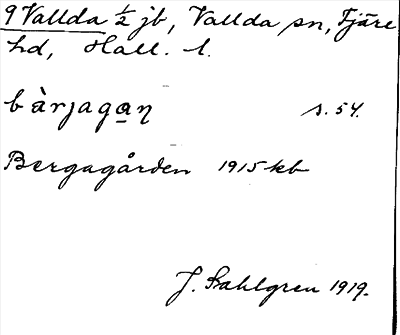 9 Vallda ½ jb, Vallda sn, Fjäre
hd, Hall. l.
bàrjagạn s. 54.
Bergagården 1915 kb
J. Sahlgren 1919.